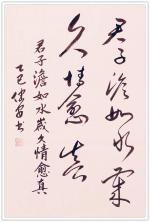 君子澹如水歲
久情愈真
君子澹如水歲久情愈真
乙巳 書